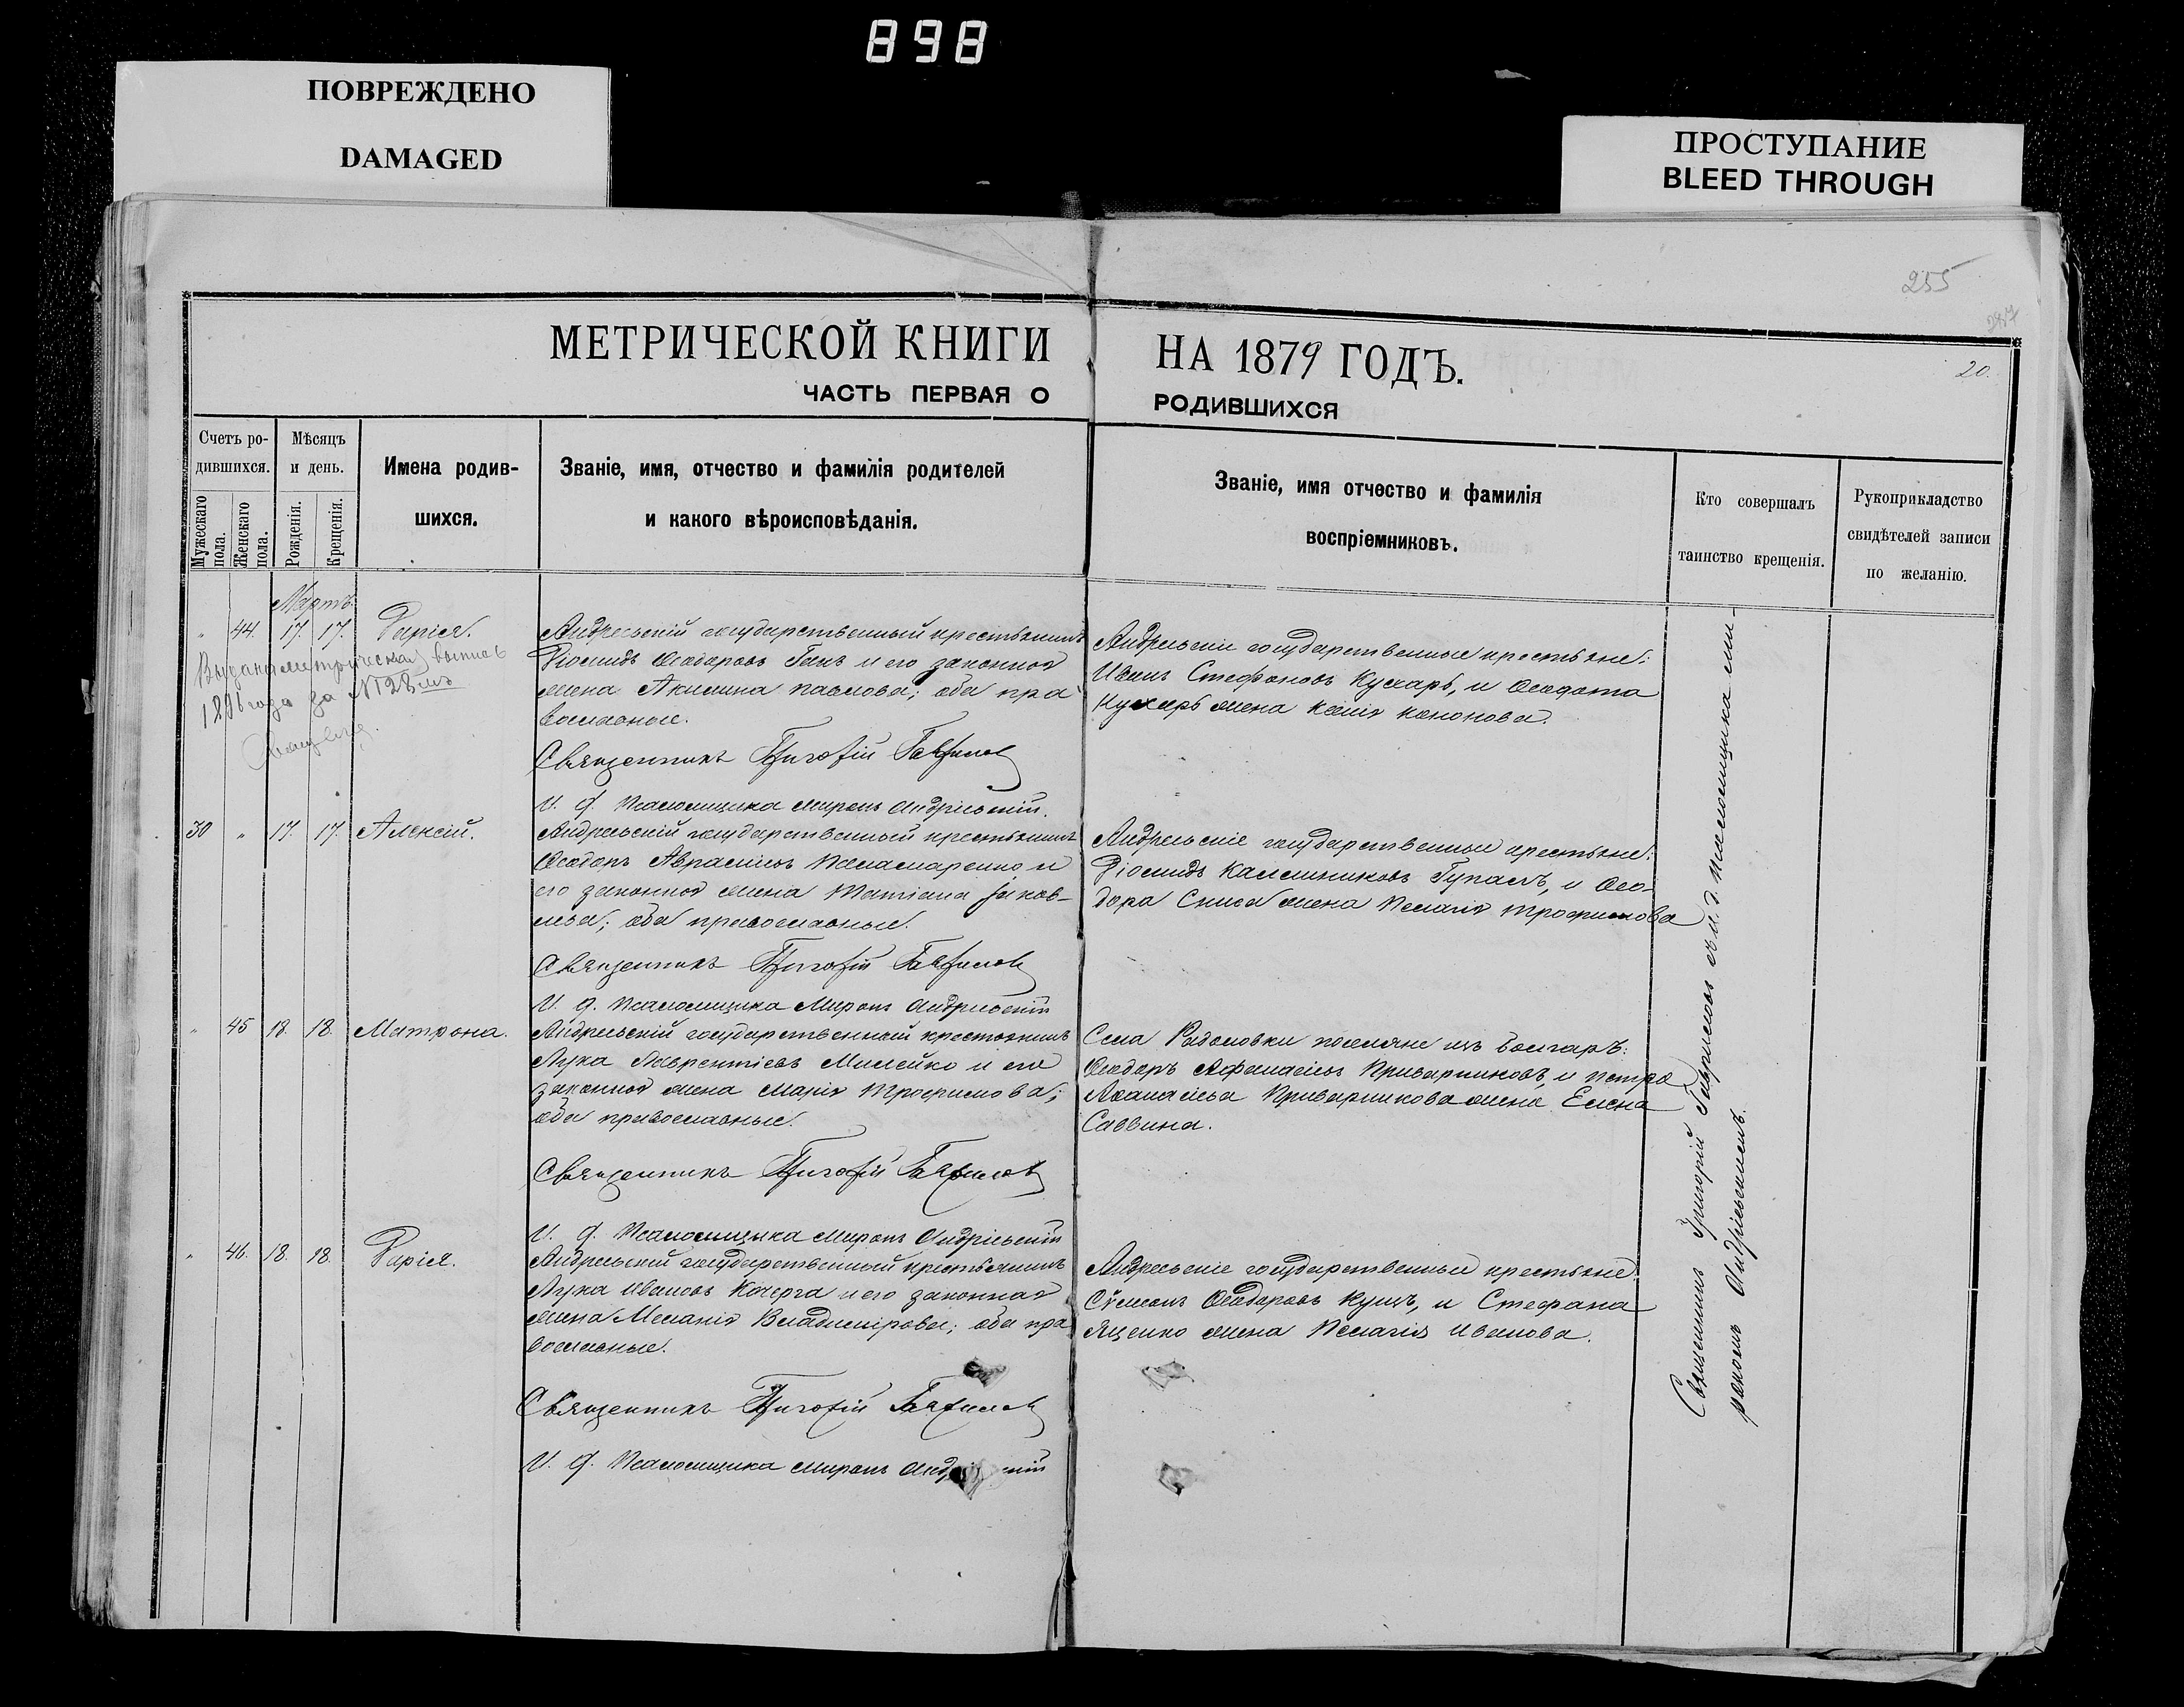 898
ПОВРЕЖДЕНО
DAMAGED
ПРОСТУПАНИЕ
BLEED THROUGH
255
287
20.
МЕТРИЧЕСКОЙ КНИГИ
НА 1879 ГОДЪ.
ЧАСТЬ ПЕРВАЯ О
РОДИВШИХСЯ
Счетъ ро-
дившихся.
Мужескаго
пола.
Женскаго
пола.
Мѣсяцъ
и день.
Рожденія.
Крещенія.
Имена родив-
шихся.
Званіе, имя, отчество и фамилія родителей
и какого вѣроисповѣданія.
Званіе, имя отчество и фамилія
воспріемниковъ.
Кто совершалъ
таинство крещенія.
Рукоприкладство
свидѣтелей записи
по желанію.
Мартъ
„ 44. 17. 17. Дарія.
Выдана метрическая выпись
189 года за №28
Андреевскій государственный крестьянинъ
Діомидъ Ѳеодоровъ Ганъ и его законная
жена Акилина Павлова; оба пра
вославные.
Священникъ Григорій Гавриловъ
И. д. Псаломщика Миронъ Андріевскій.
Андреевскіе государственные крестьяне:
Иванъ Стефановъ Кухарь, и Ѳеодота
Кухаръ жена Ксенія Кононова.
30 „ 17. 17. Алексій.
Андреевскій государственный крестьянинъ
Ѳеодоръ Аврамовъ Паламаренко и
его законная жена Татіана Іаков-
лева; оба православные.
Священникъ Григорій Гавриловъ
И. д. Псаломщика Миронъ Андріевскій
Андреевскіе государственные крестьяне:
Діомидъ Калинниковъ Гупалъ, и Ѳео-
дора жена Пелагія Трофимова
„ 45 18. 18. Матрона.
Андреевскій государственный крестьянинъ
Лука Лаврентіевъ Милейко и его
законная жена Марія Трофимова;
оба православные.
Священникъ Григорій Гавриловъ
И. д. Псаломщика Миронъ Андріевскій
Села Радоловки поселяне изъ болгаръ:
Ѳеодоръ Афанасіевъ Приварниковъ, и Петра
Аѳанасіева Приварникова жена Елена
Саввина.
„ 46. 18. 18. Дарія.
Андреевскій государственный крестьянинъ
Лука Ивановъ Кочерга и его законная
жена Меланія Владимірова; оба пра
вославные.
Священникъ Григорій Гавриловъ
И. д. Псаломщика Миронъ
Андреевскіе государственные крестьяне:
Сѵмеонъ Ѳеодоровъ Куцъ, и Стефана
Яценко жена Пелагія Иванова.
Священникъ Григорій Гавриловъ съ и. д. псаломщика Ми-
рономъ Андріевскимъ.